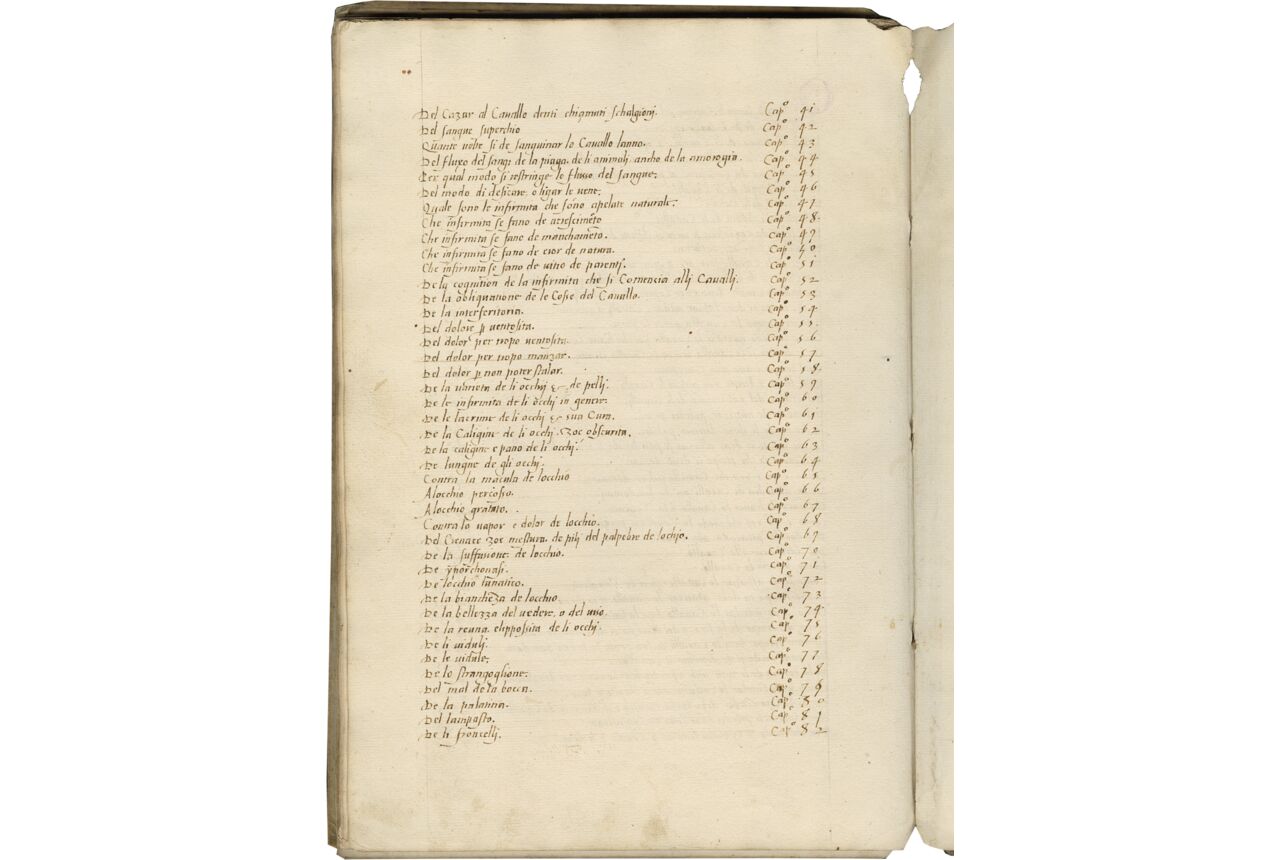 Del Cazar al Cauallo denti chiamati schalgioni. Cap° 41
Del sangue superchio Cap° 42
Quante uolte si de sanguinar lo Cauallo lanno. Cap° 43
Del fluxo del sangue de la piaga de li animoli ancho de la Cap° 44
Per qual modo si restringe lo flusso del sangue. Cap° 45
Del modo di desicare o ligar le uene. Cap° 46
Quale sono le infirmita che sono apelate naturale. Cap° 47
Che infirmita se fano de Cap° 48
Che infirmita se fano de manchamẽto. Cap° 49
Che infirmita se fano de eror de natura. Cap° 50
Che infirmita se fano de uitio de parenti. Cap° 51
Dela cognition de la infirmita che si Comenza alli Caualli. Cap° 52
De la obliquatione de le Cosse del Cauallo. Cap° 53
De la interferitoria. Cap° 54
Del dolore p uentosita. Cap° 55
Del dolor per tropo uentosita. Cap° 56
Del dolor per tropo manzar. Cap° 57
Del dolor p non poter stalar. Cap° 58
De la uarieta de li occhij & de pelli. Cap° 59
De le infirmita de li occhi in genere. Cap° 60
De le lacrime de li occhi & sua Cura. Cap° 61
De la Caligine de li occhi zoe obscurita. Cap° 62
De la caligine e pano de li occhi. Cap° 63
De lungue de gli occhi. Cap° 64
Contra la macula de locchio Cap° 65
Alocchio percosso. Cap° 66
Alocchio gratato. Cap° 67
Contra lo uapor e dolor de locchio. Cap° 68
Del zoe mestura de pilj del palpebre de lochio. Cap° 69
De la suffusione de locchio. Cap° 70
De Cap° 71
De locchio lunatico. Cap° 72
De la bianchezza de locchio Cap° 73
De la bellezza del uedere o del uiso Cap° 74
De la de li occhi. Cap° 75
De li uiduli. Cap° 76
De le uidule. Cap° 77
De lo strangoglione. Cap° 78
Del mal de la bocca. Cap° 79
De la palatina. Cap° 80
Del lampasto. Cap° 81
De li froncelli. Cap° 82